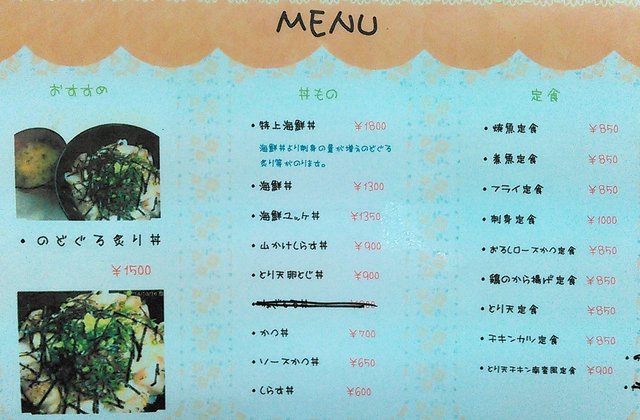 MENU
おすすめ
・のどぐろ炙り丼
¥1500
丼もの
・特上海鮮丼 ¥1800
海鮮丼より刺身の量が増えのどぐろ
炙り等がのります。
・海鮮丼 ¥1300
・海鮮ユッケ丼 ¥1350
・山かけしらす丼 ¥900
・とり天卵とじ丼 ¥900
・かつ丼 ¥700
・ソースかつ丼 ¥650
・しらす丼 ¥600
定食
・焼魚定食 ¥850
・煮魚定食 ¥850
・フライ定食 ¥850
・刺身定食 ¥1000
・おろしロースかつ定食 ¥850
・鶏のから揚げ定食 ¥850
・とり天定食 ¥850
・チキンカツ定食 ¥850
・とり天チキン南蛮風定食 ¥900